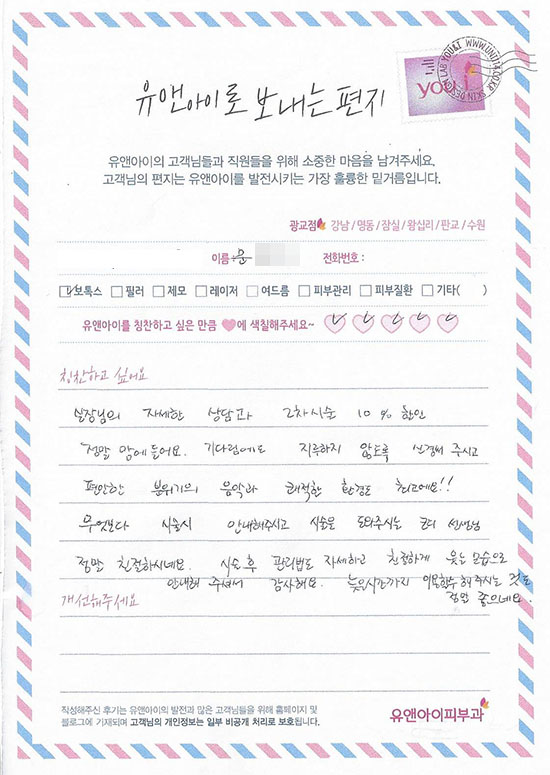 SKIN DESIGN LAB YOU&I WWW.UNI114.CO.KR
you
유앤아이로 보내는 편지
유앤아이의 고객님들과 직원들을 위해 소중한 마음을 남겨주세요.
고객님의 편지는 유앤아이를 발전시키는 가장 훌륭한 밑거름입니다.
광교점 강남 / 명동 / 잠실 / 왕십리 / 판교 / 수원
이름 : 문 전화번호 :
보톡스 필러 제모 레이저 여드름 피부관리 피부질환 기타( )
유앤아이를 칭찬하고 싶은 만큼 에 색칠해주세요~
칭찬하고 싶어요
실장님의 자세한 상담과 2차시술 10% 할인
정말 맘에 들어요. 기다림에도 지루하지 않도록 신경써 주시고
편안한 분위기의 음악과 쾌적한 환경도 최고에요!!
무엇보다 시술시 안내해주시고 시술을 도와주시는 코디 선생님
정말 친절하시네요. 시술 후 관리법도 자세하고 친절하게 웃는 모습으로
안내해 주셔서 감사해요. 늦은시간까지 이용할수 해주시는 것도
정말 좋으네요.
개선해주세요
작성해주신 후기는 유앤아이의 발전과 많은 고객님들을 위해 홈페이지 및
블로그에 기재되며 고객님의 개인정보는 일부 비공개 처리로 보호됩니다.
유앤아이피부과